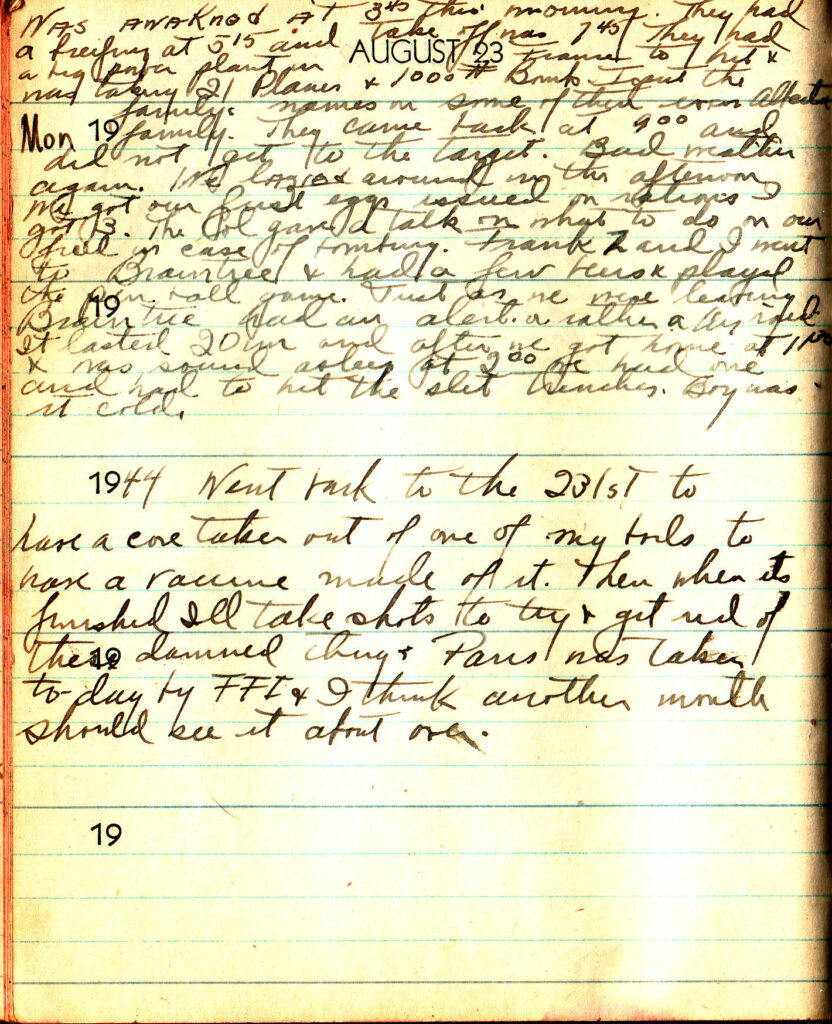 Was awakned at 3⁴⁵ this morning. They had
a breifing at 5¹⁵ and take off was 7⁴⁵ They had
AUGUST 23
a big power plant in France to hit &
was taking 21 Planes & 1000 # Bombs I put the
family names on some of them even
Mon 19 family. They came back at 9⁰⁰ and
did not get to the target. Bad weather
again. We around in the afternoon
We got our first eggs issued on rations I
got 13. The Col gave a talk on what to do on our
field in case of bombing. Frank Z and I went
to Braintree & had a few beers & played
the pin ball game. Just as we were leaving
19
Braintree had an alert or rather a air raid.
It lasted 20 and after we got home at 11⁰⁰
& was sound asleep at 2⁰⁰ we had one
and had to hit the slit trenches. Boy was
it cold.
1944 Went back to the 231st to
have a core taken out of one of my boils to
have a vaccine made of it. Then when its
finished Ill take shots to try & get rid of
19
these damned things Paris was taken
to-day by FFI & I think another month
should see it about over.
19